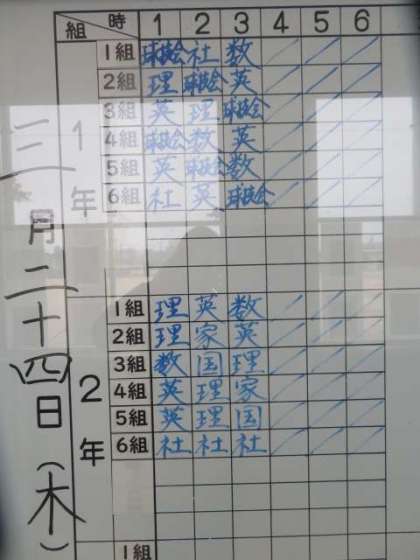 組 時 1 2 3 4 5 6
三月二十四日(木)
1年
1組 球技会 社 数
2組 理 球技会 英
3組 英 理 球技会
4組 球技会 数 英
5組 英 球技会 数
6組 社 英 球技会
2年
1組 理 英 数
2組 理 家 英
3組 数 国 理
4組 英 理 家
5組 英 理 国
6組 社 社 社
1組